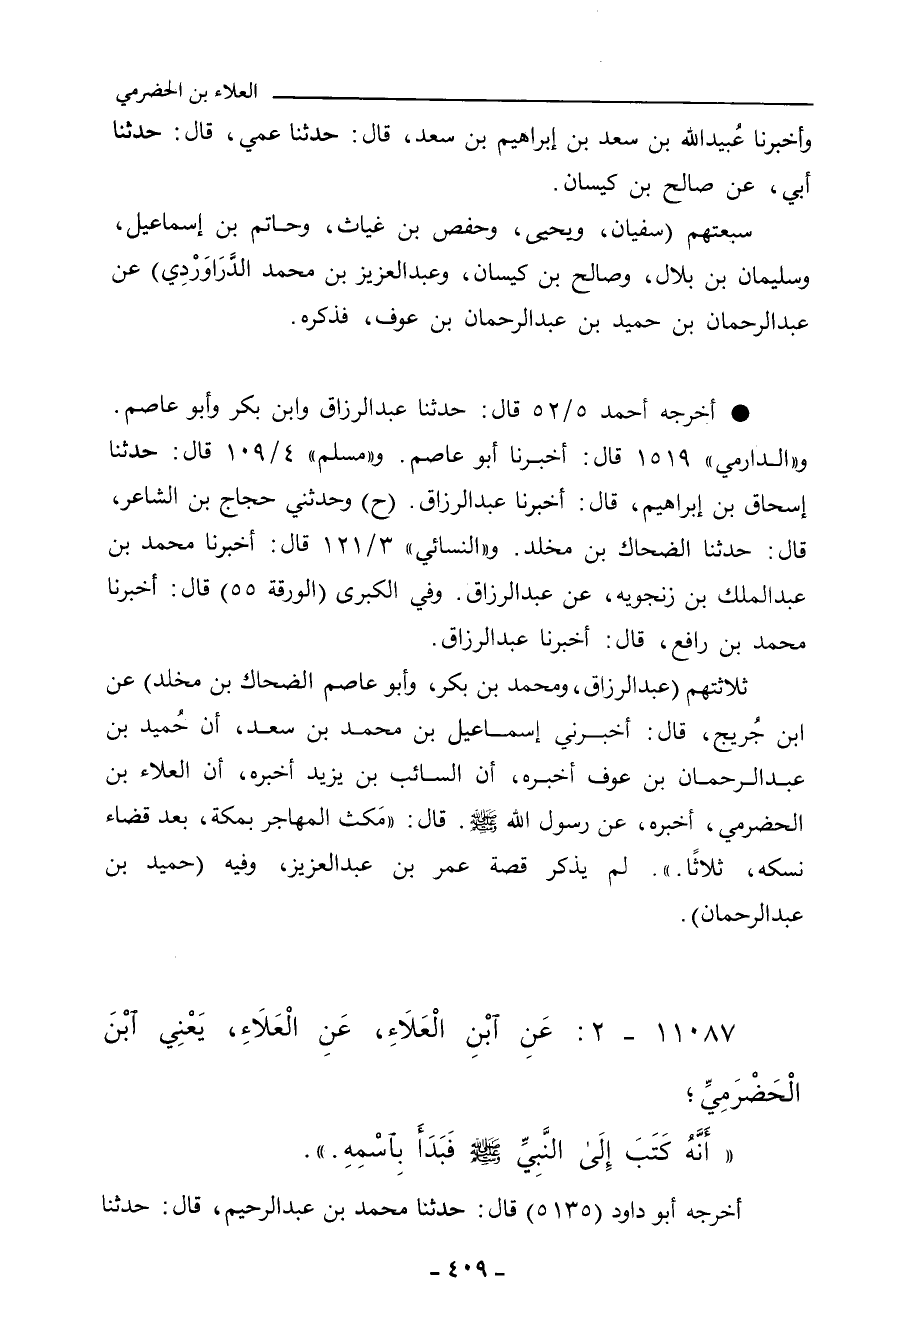 العلاء بن الحضرمي
وأخبرنا عُبيدالله بن سعد بن إبراهيم بن سعد، قال: حدثنا عمي، قال: حدثنا
أبي، عن صالح بن كيسان.
سبعتهم (سفيان، ويحيى، وحفص بن غياث، وحاتم بن إسماعيل،
وسليمان بن بلال، وصالح بن كيسان، وعبدالعزيز بن محمد الدَّرَاوَرْدِي) عن
عبدالرحمان بن حميد بن عبدالرحمان بن عوف، فذكره.
● أخرجه أحمد ٥٢/٥ قال: حدثنا عبدالرزاق وابن بكر وأبو عاصم.
و«الدارمي» ١٥١٩ قال: أخبرنا أبو عاصم. و«مسلم» ١٠٩/٤ قال: حدثنا
إسحاق بن إبراهيم، قال: أخبرنا عبدالرزاق. (ح) وحدثني حجاج بن الشاعر،
قال: حدثنا الضحاك بن مخلد. و«النسائي» ١٢١/٣ قال: أخبرنا محمد بن
عبدالملك بن زنجويه، عن عبدالرزاق. وفي الكبرى (الورقة ٥٥) قال: أخبرنا
محمد بن رافع، قال: أخبرنا عبدالرزاق.
ثلاثتهم (عبدالرزاق، ومحمد بن بكر، وأبو عاصم الضحاك بن مخلد) عن
ابن جُريج، قال: أخبرني إسماعيل بن محمد بن سعد، أن حُميد بن
عبدالرحمان بن عوف أخبره، أن السائب بن يزيد أخبره، أن العلاء بن
الحضرمي، أخبره، عن رسول الله ﷺ. قال: «مَكث المهاجر بمكة، بعد قضاء
نسكه، ثلاثًا.». لم يذكر قصة عمر بن عبدالعزيز، وفيه (حميد بن
عبدالرحمان).
١١٠٨٧ - ٢: عَنِ ٱبْنِ الْعَلَاءِ، عَنِ الْعَلَاءِ، يَعْنِي ٱبْنَ
الْحَضْرَمِيِّ؛
« أَنَّهُ كَتَبَ إِلَىٰ النَّبِيِّ ﷺ فَبَدَأَ بِٱسْمِهِ.».
أخرجه أبو داود (٥١٣٥) قال: حدثنا محمد بن عبدالرحيم، قال: حدثنا
- ٤٠٩ -